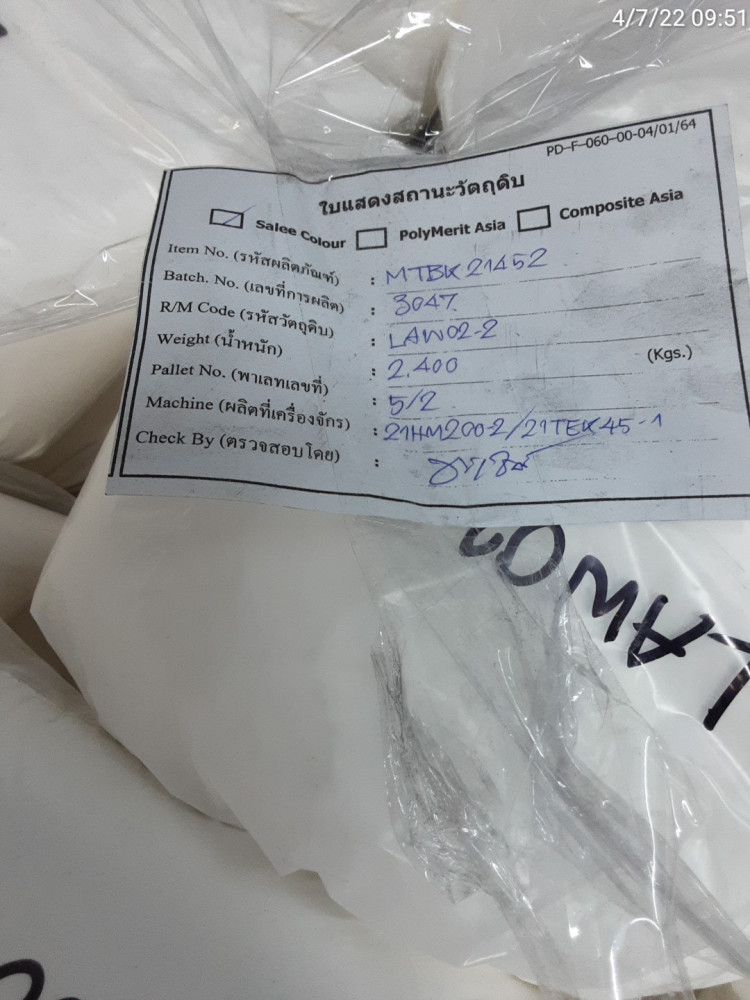 4/7/22 09:51
PD-F-060-00-04/01/64
ใบแสดงสถานะวัตถุดิบ
Salee Colour PolyMerit Asia Composite Asia
Item No. (รหัสผลิตภัณฑ์) : MTBK21452
Batch. No. (เลขที่การผลิต) : 3047
R/M Code (รหัสวัตถุดิบ) : LAW02-2
Weight (น้ำหนัก) : 2.400 (Kgs.)
Pallet No. (พาเลทเลขที่) : 5/2
Machine (ผลิตที่เครื่องจักร) : 21HM200-2/21TEK45-1
Check By (ตรวจสอบโดย) :
LAW02